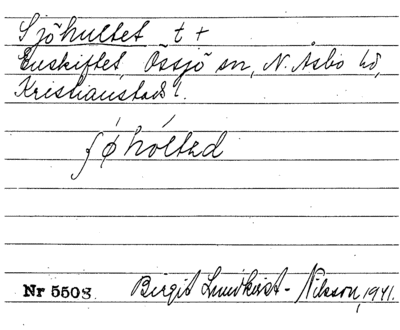 Sjöhultet t +
Enskiftet Össjö sn, N. Åsbo hd,
Kristianstads l.
ʃø̀hólted
Nr 5508 Birgit Lundkvist-Nilsson, 1941.